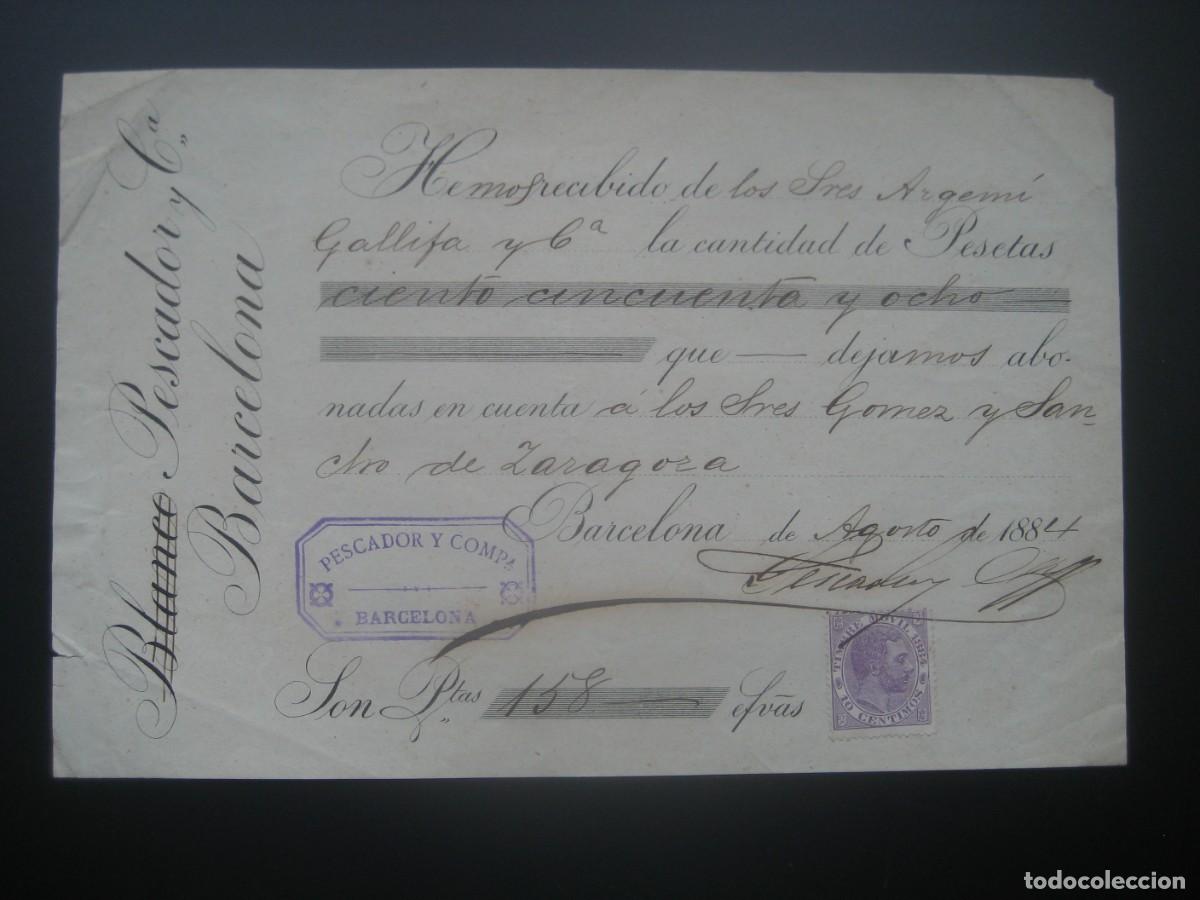 Blanco Pescador y Cª
Barcelona
Hemos recibido de los Sres Argemí
Gallifa y Cª la cantidad de Pesetas
ciento cincuenta y ocho
que — dejamos abo-
nadas en cuenta á los Sres Gomez y San-
cho de Zaragoza
Barcelona de Agosto de 1884
Pescador y Cª
PESCADOR Y COMPª
BARCELONA
Son Ptas 158 — efvãs
TIMBRE MOVIL 1884
10 CENTIMOS
todocoleccion